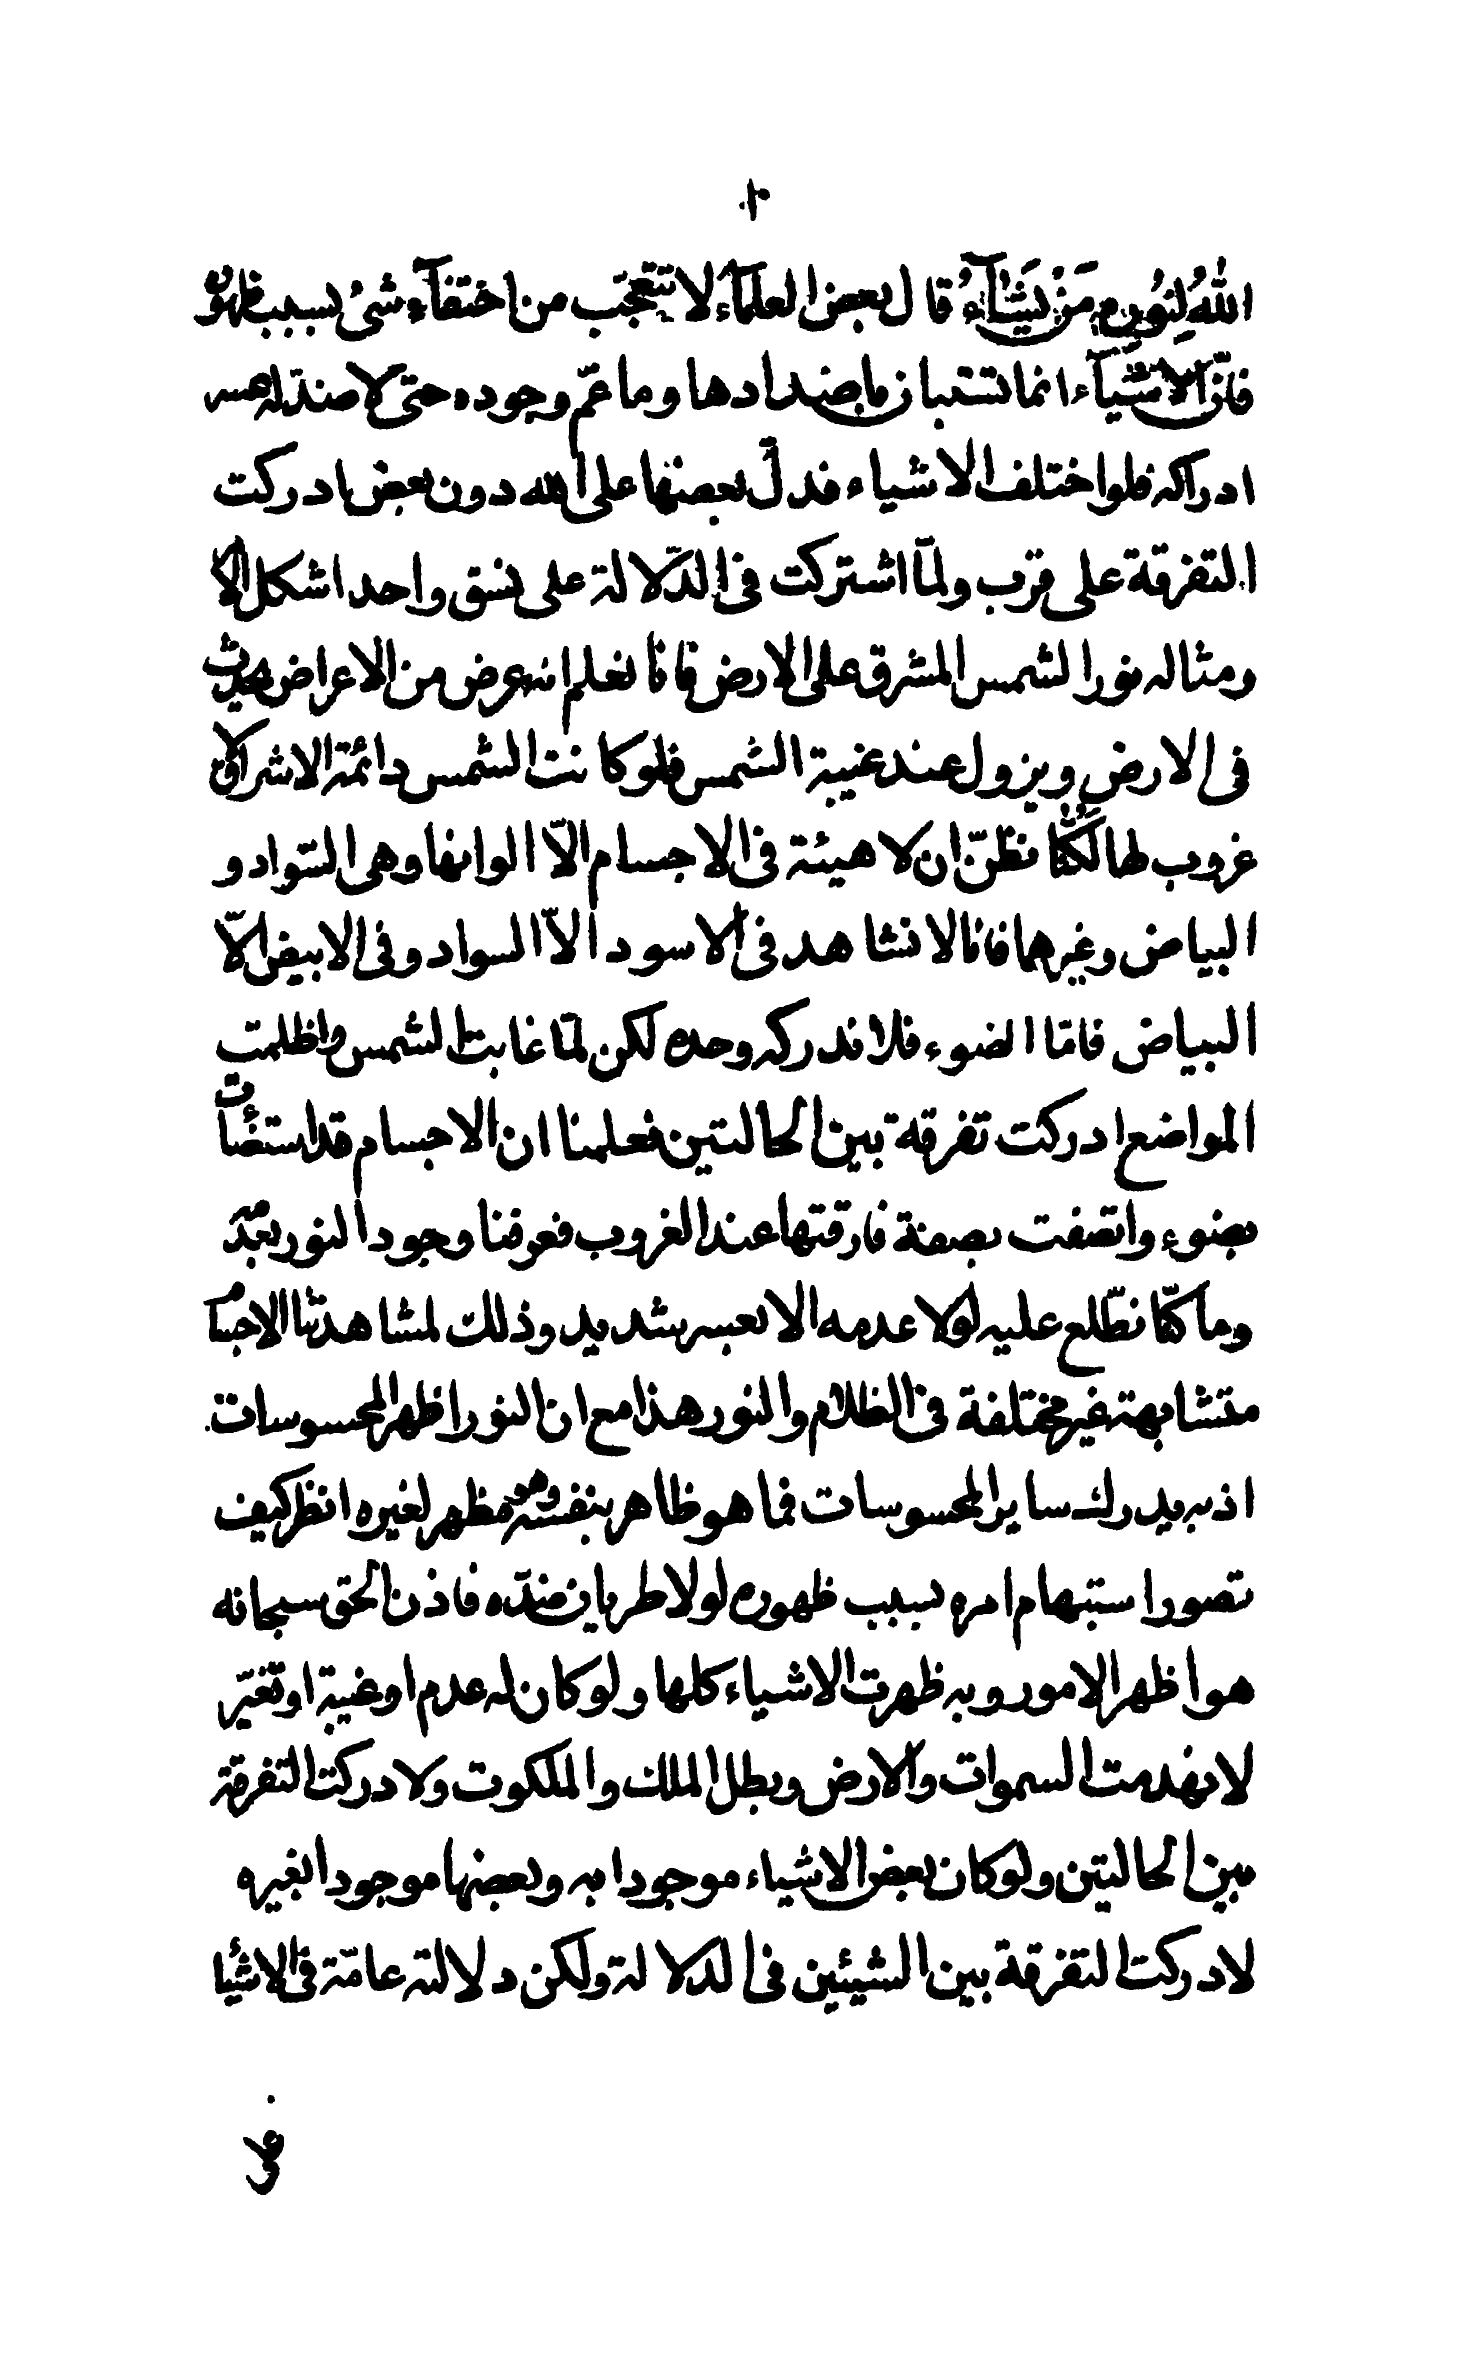 ١٠
اللهُ لِنُورِهِ مَنْ يَشَآءُ قال بعض العلمآء لا تتعجّب من اختفآء شئ بسبب ظهوره
فانّ الاشيآء انما تستبان باضدادها وما عمّ وجوده حتى لا ضدّ له عسر
ادراكه فلو اختلف الاشياء فدلّ بعضها على الله دون بعض ادركت
التفرقة على قرب ولمّا اشتركت فى الدّلالة على نسق واحد اشكل الامر
ومثاله نور الشمس المشرق على الارض فانا نعلم انه عرض من الاعراض يحدث
فى الارض ويزول عند غيبة الشمس فلو كانت الشمس دائمة الاشراق لا
غروب لها لكُنّا نظنّ ان لا هيئة فى الاجسام الّا الوانها وهى السّواد و
البياض وغيرهما فانا لا نشاهد فى الاسود الاّ السواد وفى الابيض الّا
البياض فامّا الضوء فلا ندركه وحده لكن لمّا غابت الشمس واظلمت
المواضع ادركت تفرقة بين الحالتين فعلمنا ان الاجسام قد استضأت
بضوء واتصفت بصفة فارقتها عند الغروب فعرفنا وجود النور بعدمه
وما كنّا نطّلع عليه لولا عدمه الا بعسر شديد وذلك لمشاهدتنا الاجسام
متشابهة غير مختلفة فى الظلام والنور هذا مع ان النور اظهر المحسوسات
اذ به يدرك ساير المحسوسات فما هو ظاهر بنفسه وهو مظهر لغيره انظر كيف
تصور استبهام امره بسبب ظهوره لولا طريان ضدّه فاذن الحق سبحانه
هو اظهر الامور وبه ظهرت الاشياء كلها ولو كان له عدم او غيبة او تغيّر
لانهدمت السموات والارض وبطل الملك والملكوت ولادركت التفرقة
بين الحالتين ولو كان بعض الاشياء موجودا به وبعضها موجودا بغيره
لادركت التفرقة بين الشيئين فى الدلالة ولكن دلالته عامّة فى الاشيا